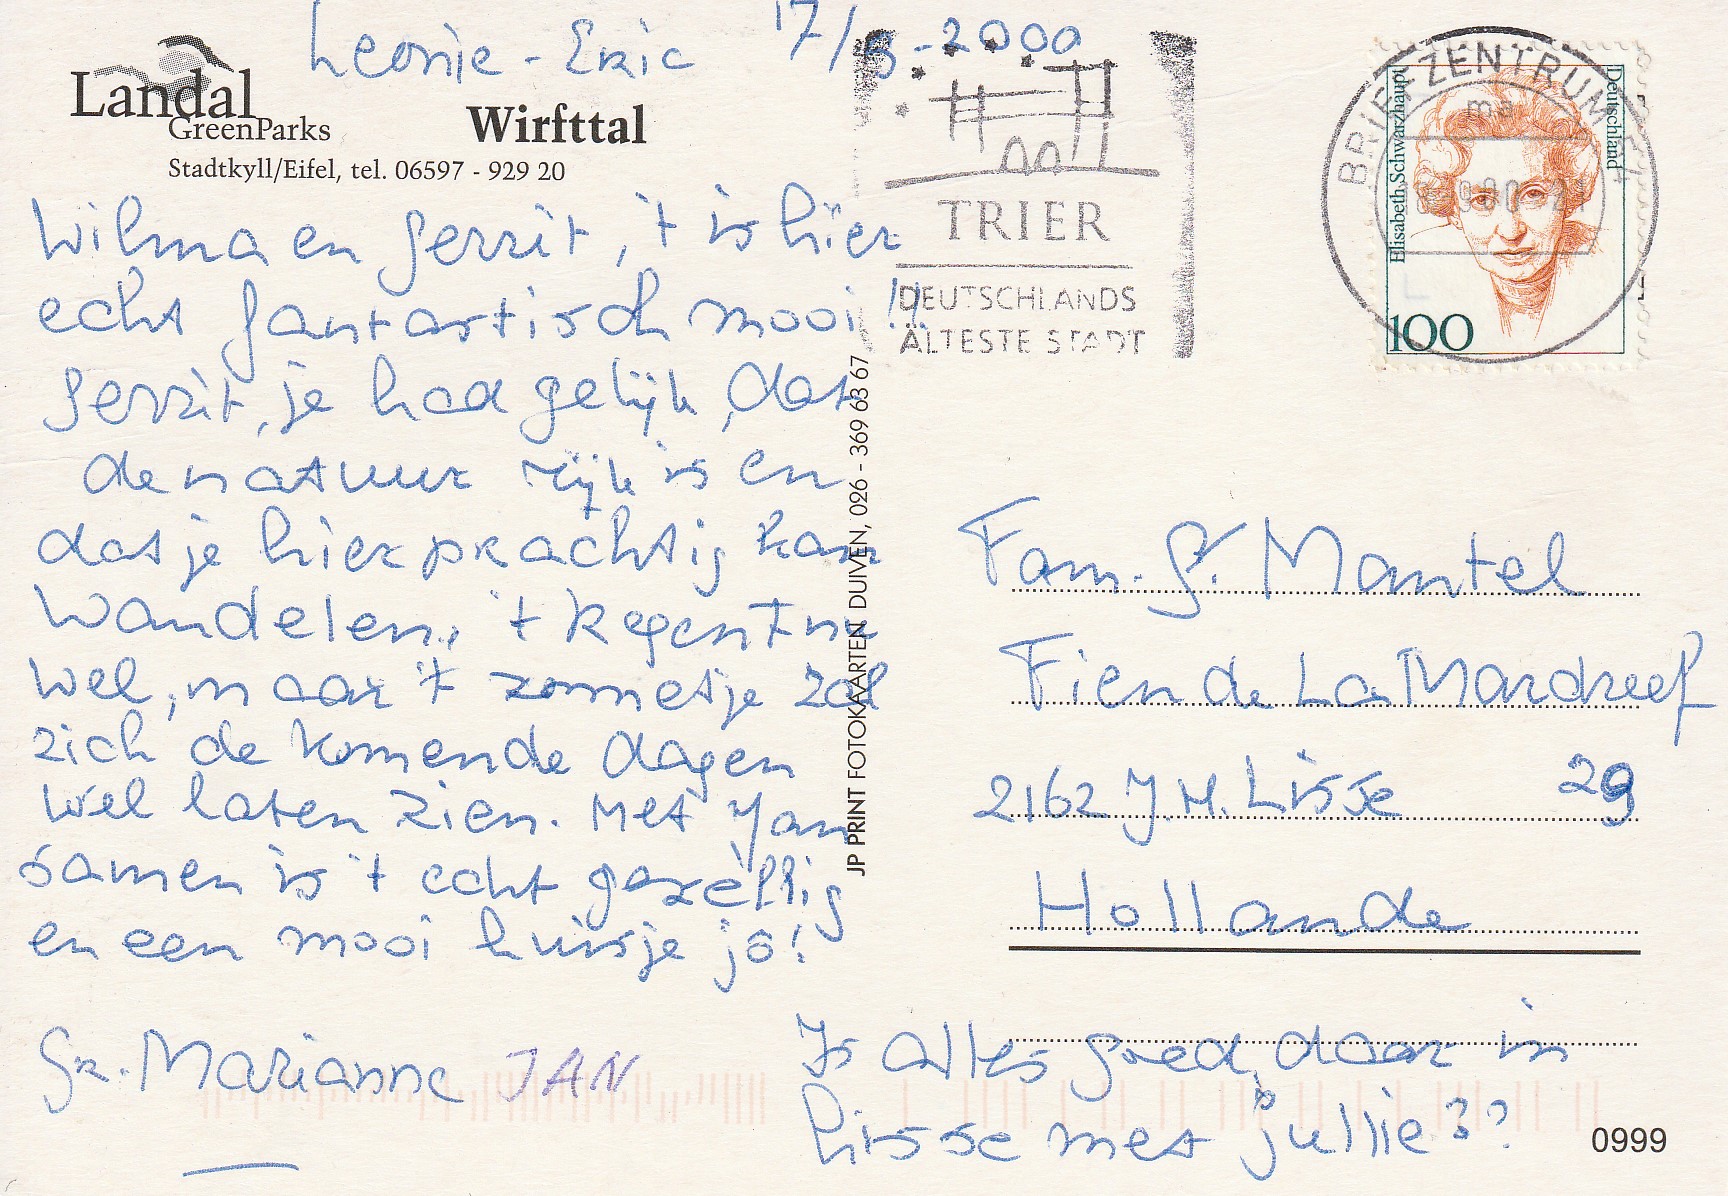 Leonie - Eric 17/9-2000
Landal
GreenParks
Wirfttal
Stadtkyll/Eifel, tel. 06597 - 929 20
Wilma en Gerrit, 't is hier
echt fantastisch mooi!!
Gerrit, je had gelijk, dat
de natuur rijk is en
dat je hier prachtig kan
wandelen, 't Regent nu
wel, maar 't zonnetje zal
zich de komende dagen
wel laten zien. Met Jan
samen is 't echt gezellig
en een mooi huisje jô!
Gr. Marianne JAN
JP PRINT FOTOKAARTEN DUIVEN, 026 - 369 63 67
TRIER
DEUTSCHLANDS
ÄLTESTE STADT
BRIEFZENTRUM
Elisabeth Schwarzhaupt
Deutschland
100
Fam. G. Mantel
Fien de La Mardreef
29
2162 J.M. Lisse
Hollande
Is alles goed daar in
Lisse met jullie??
0999